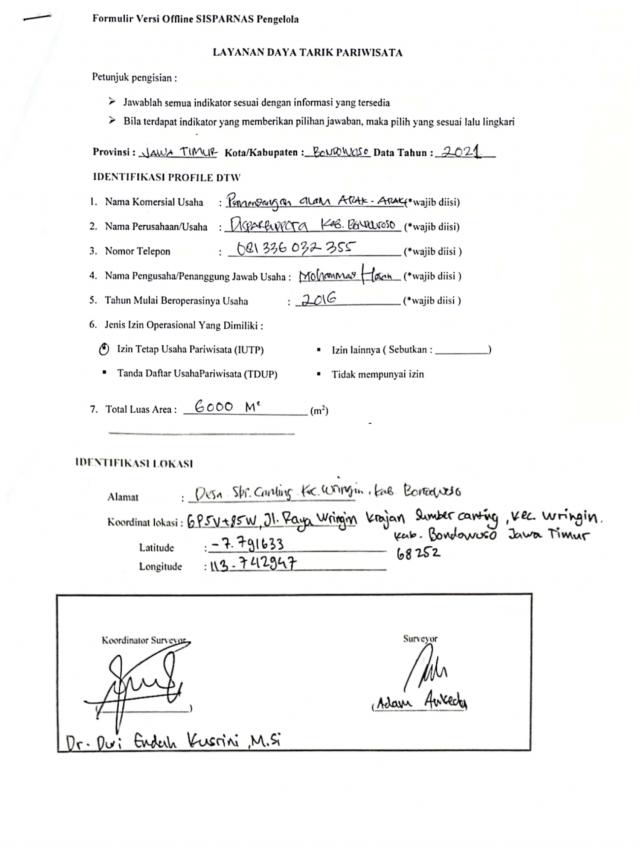 Formulir Versi Offline SISPARNAS Pengelola
LAYANAN DAYA TARIK PARIWISATA
Petunjuk pengisian :
➢ Jawablah semua indikator sesuai dengan informasi yang tersedia
➢ Bila terdapat indikator yang memberikan pilihan jawaban, maka pilih yang sesuai lalu lingkari
Provinsi : JAWA TIMUR Kota/Kabupaten : BONDOWOSO Data Tahun : 2021
IDENTIFIKASI PROFILE DTW
1. Nama Komersial Usaha : Pemandangan alam ARAK-ARAK (*wajib diisi)
2. Nama Perusahaan/Usaha : KAB. Bondowoso (*wajib diisi)
3. Nomor Telepon : 081 336 032 355 (*wajib diisi )
4. Nama Pengusaha/Penanggung Jawab Usaha : Mohammad Hasan (*wajib diisi )
5. Tahun Mulai Beroperasinya Usaha : 2016 (*wajib diisi )
6. Jenis Izin Operasional Yang Dimiliki :
Izin Tetap Usaha Pariwisata (IUTP) ▪ Izin lainnya ( Sebutkan : ________)
▪ Tanda Daftar UsahaPariwisata (TDUP) ▪ Tidak mempunyai izin
7. Total Luas Area : 6000 M² (m²)
IDENTIFIKASI LOKASI
Alamat : Desa Sbr. Canting Kec. Wringin, Kab Bondowoso
Koordinat lokasi : 6P5V+85W, Jl. Raya Wringin Krajan Sumber canting, Kec. Wringin.
Kab. Bondowoso Jawa Timur
68252
Latitude : -7.791633
Longitude : 113.742947
Koordinator Surveyor Surveyor
(Adam )
Dr. Dwi Endah Kusrini, M.Si